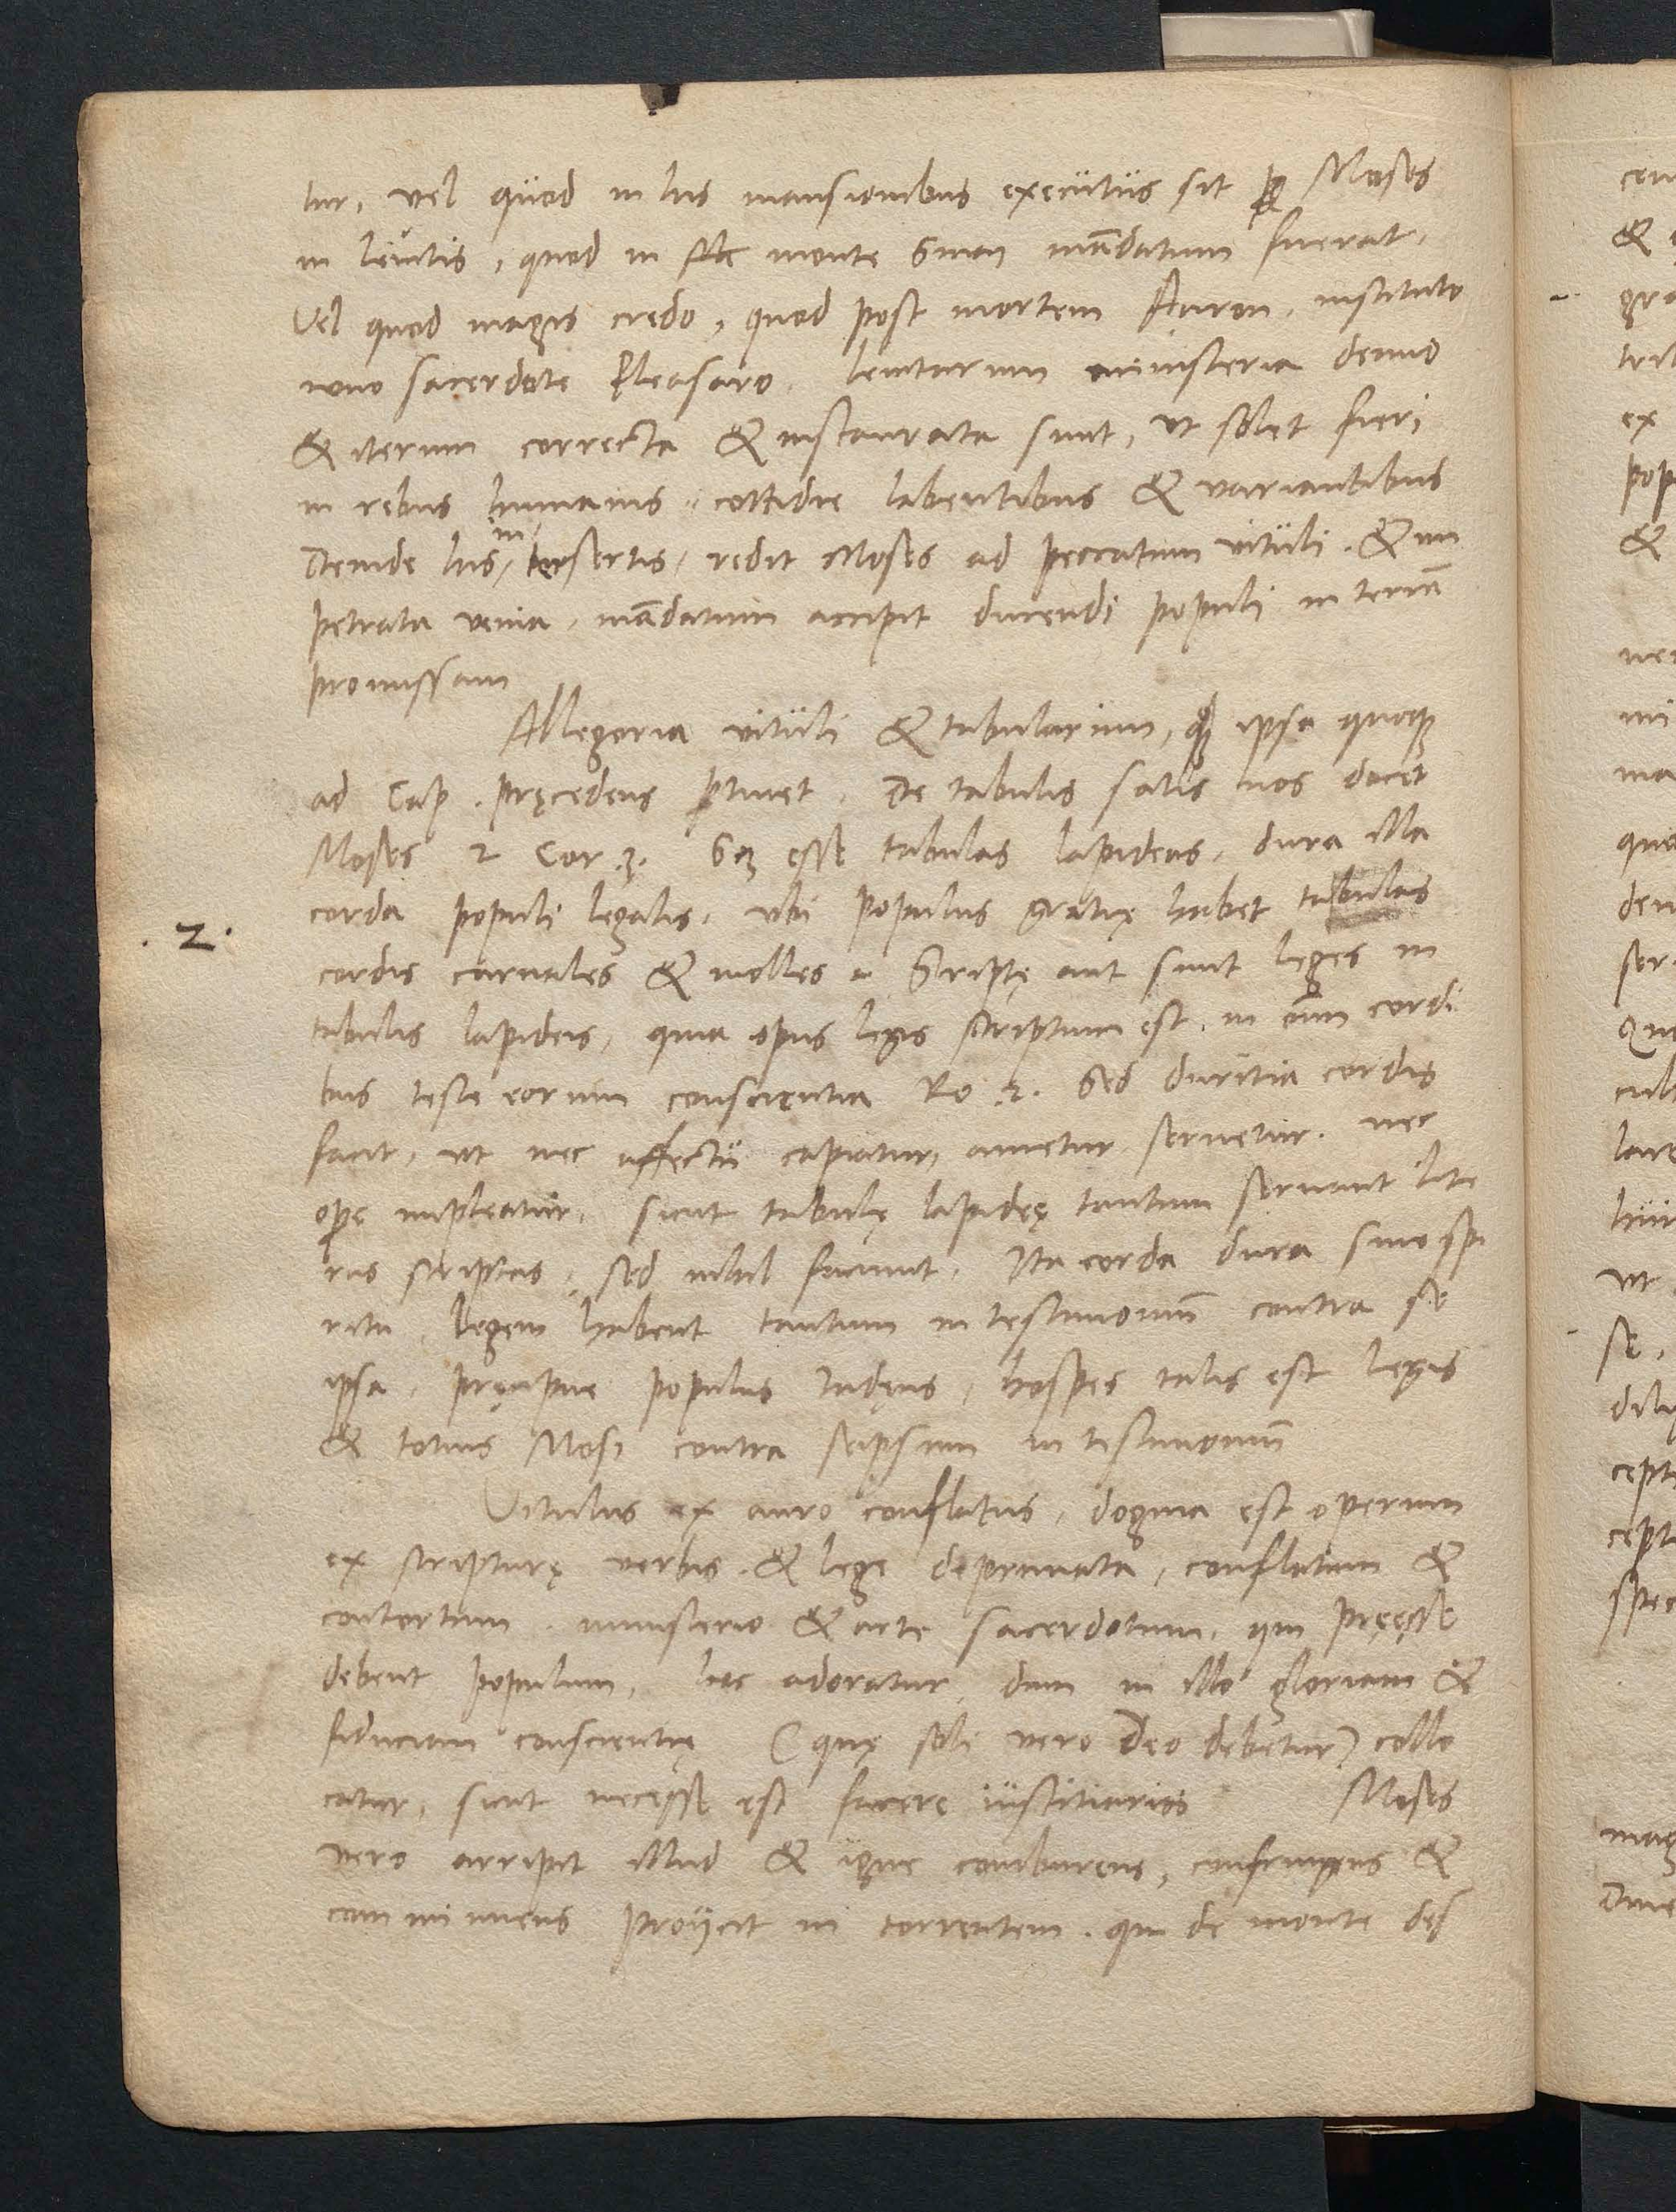 tur, vel quod in his mansionibus executus sit Moses
in levitis, quod in monte Sinai mādatum fuerat.
Vel quod magis credo, quod post mortem Aaron, instituto
novo sacerdote Eleasaro, levitarum ministeria denuo
& iterum correcta & instaurata sunt, ut solet fieri
in rebus humanis cottidie labentibus & variantibus
Deinde his insertis, redit Moses ad peccatum vituli. & im
petrata venia, mādatum accipit ducendi populi in terrā
promissam
Allegoria vituli & tabularum, q̨ ipsa quoq;
ad Cap. pręcedens ptinet. De tabulis satis nos docet
Moses 2 Cor. 3. Scz esse tabulas lapideas, dura illa
corda populi legalis, ubi populus gratię habet tabulas
. 2 .
cordis carnales & molles. Scriptę aut sunt leges in
tabulis lapideis, quia opus legis scriptum est, in oīm cordi
bus teste eorum conscientia Ro. 2. Sed duritia cordis
facit, ut nec affectu capiatur, ametur servetur. nec
opę impleatur. sicut tabulę lapidęę tantum servant lite
ras scriptas, sed nihil faciunt. Ita corda dura sine spi
ritu, legem habent tantum in testimoniū contra se
ipsa, pręcipue populus Iudęus, hospes talis est legis
& totius Mosi contra seipsum in testimoniū
Vitulus ex auro conflatus, dogma est operum
ex scripturę verbis & lege depravata, conflatum &
contortum, ministerio & arte sacerdotum, qui pręesse
debent populum, hoc adoratur, dum in illo gloriam &
fiduciam conscientię (quę soli vero Deo debetur) collo
catur, sicut necesse est facere iustitiarios Moses
vero arripit illud & igne comburens, confringens &
comminuens proijcit in torrentem, qui de monte des